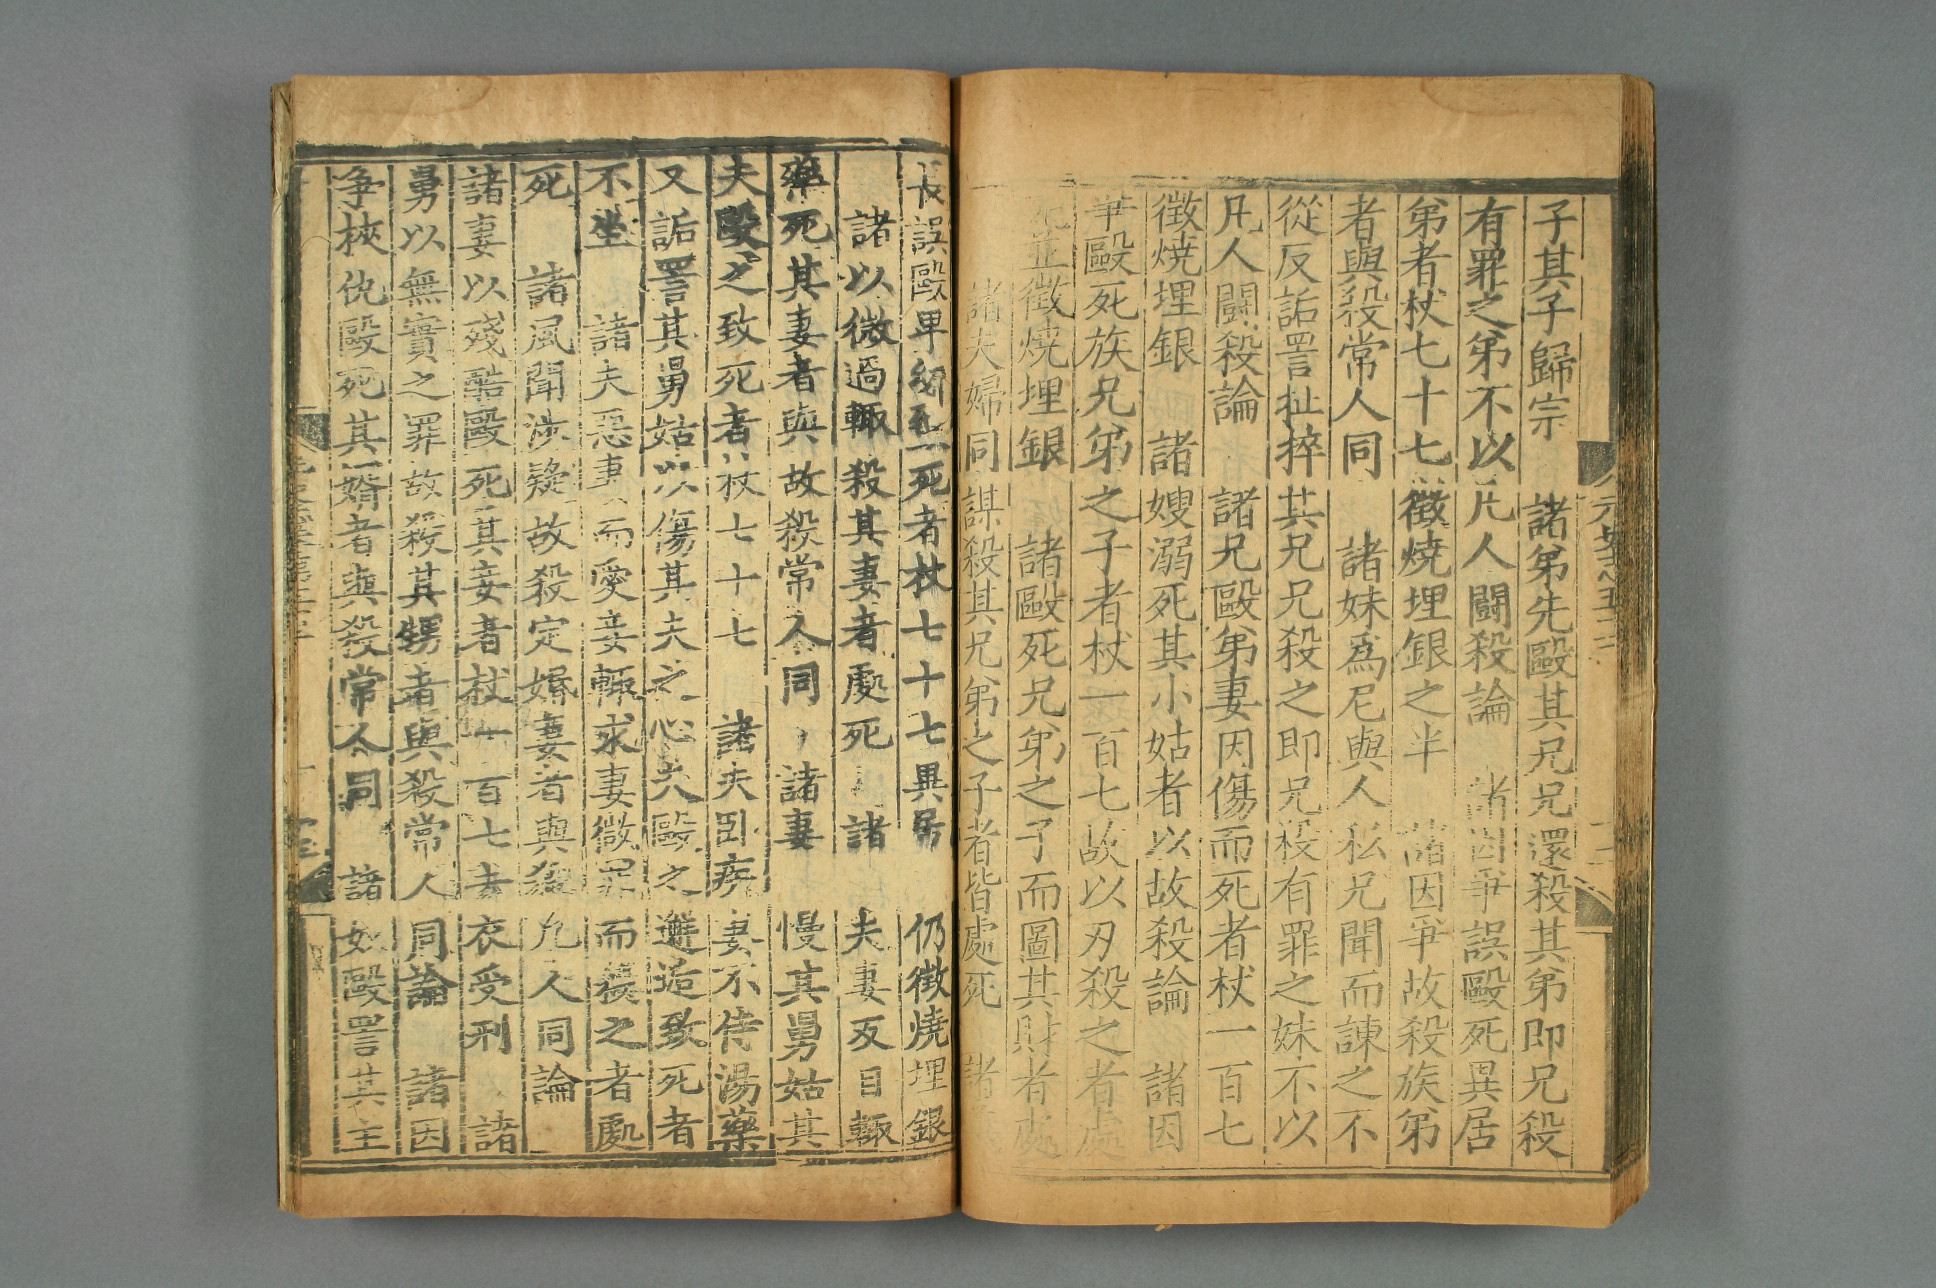 子其子歸宗 諸弟先毆其兄兄還殺其弟即兄殺
有罪之弟不以凡人鬭殺論 諸因爭誤毆死異居
弟者杖七十七徵燒埋銀之半 諸因爭故殺族弟
者與殺常人同 諸妹爲尼與人私兄聞而諫之不
從反詬詈扯捽其兄兄殺之即兄殺有罪之妹不以
凡人鬭殺論 諸兄毆弟妻因傷而死者杖一百七
徵燒埋銀 諸嫂溺死其小姑者以故殺論 諸因
爭毆死族兄弟之子者杖一百七故以刃殺之者處
死並徵燒埋銀 諸毆死兄弟之子而圖其財者處
諸夫婦同謀殺其兄弟之子者皆處死 諸
長誤毆卑幼致死者杖七十七異居仍徵燒埋銀
諸以微過輒殺其妻者處死 諸夫妻反目輒
藥死其妻者與故殺常人同 諸妻慢其舅姑其
夫毆之致死者杖七十七 諸夫卧疾妻不侍湯藥
又詬詈其舅姑以傷其夫之心夫毆之邂逅致死者
不坐 諸夫惡妻而愛妾輒求妻微罪而殺之者處
死 諸風聞涉疑故殺定婚妻者與殺凡人同論
諸妻以殘酷毆死其妾者杖一百七去衣受刑 諸
舅以無實之罪故殺其甥者與殺常人同論 諸因
争挾仇毆死其婿者與殺常人同 諸奴毆詈其主